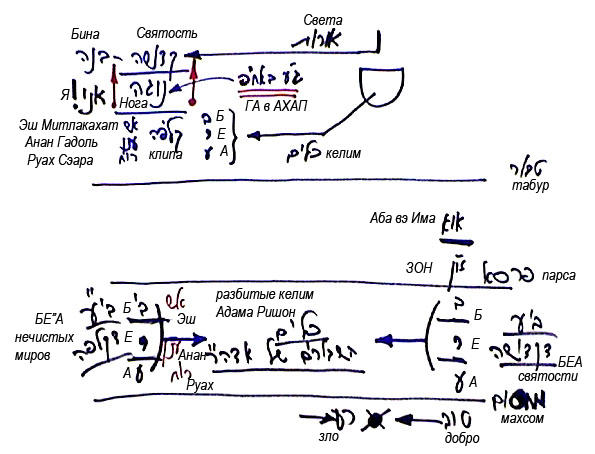 Бина Святость Света
בינה - קדושה אורות
Я אני! Нога נוגה ג"ע באח"פ
ГА в АХАП
Эш Митлакахат אש קליפה ב Б
Анан Гадоль ענן י Е כלים келим
Руах Сэара רוח клипа ע А
טבור
табур
Аба вэ Има
או"א
ЗОН זו"ן פרסא парса
разбитые келим
Адама Ришон
БЕ"А
нечистых
миров
בי"ע
דקליפה
ב' Б אש Эш
י Е ענן Анан
ע А רוח Руах
כלים
השבורים של אדה"ר
ב Б
י Е
ע А
בי"ע
דקדושה БЕА
святости
מחסום
махсом
רע טוב
зло добро